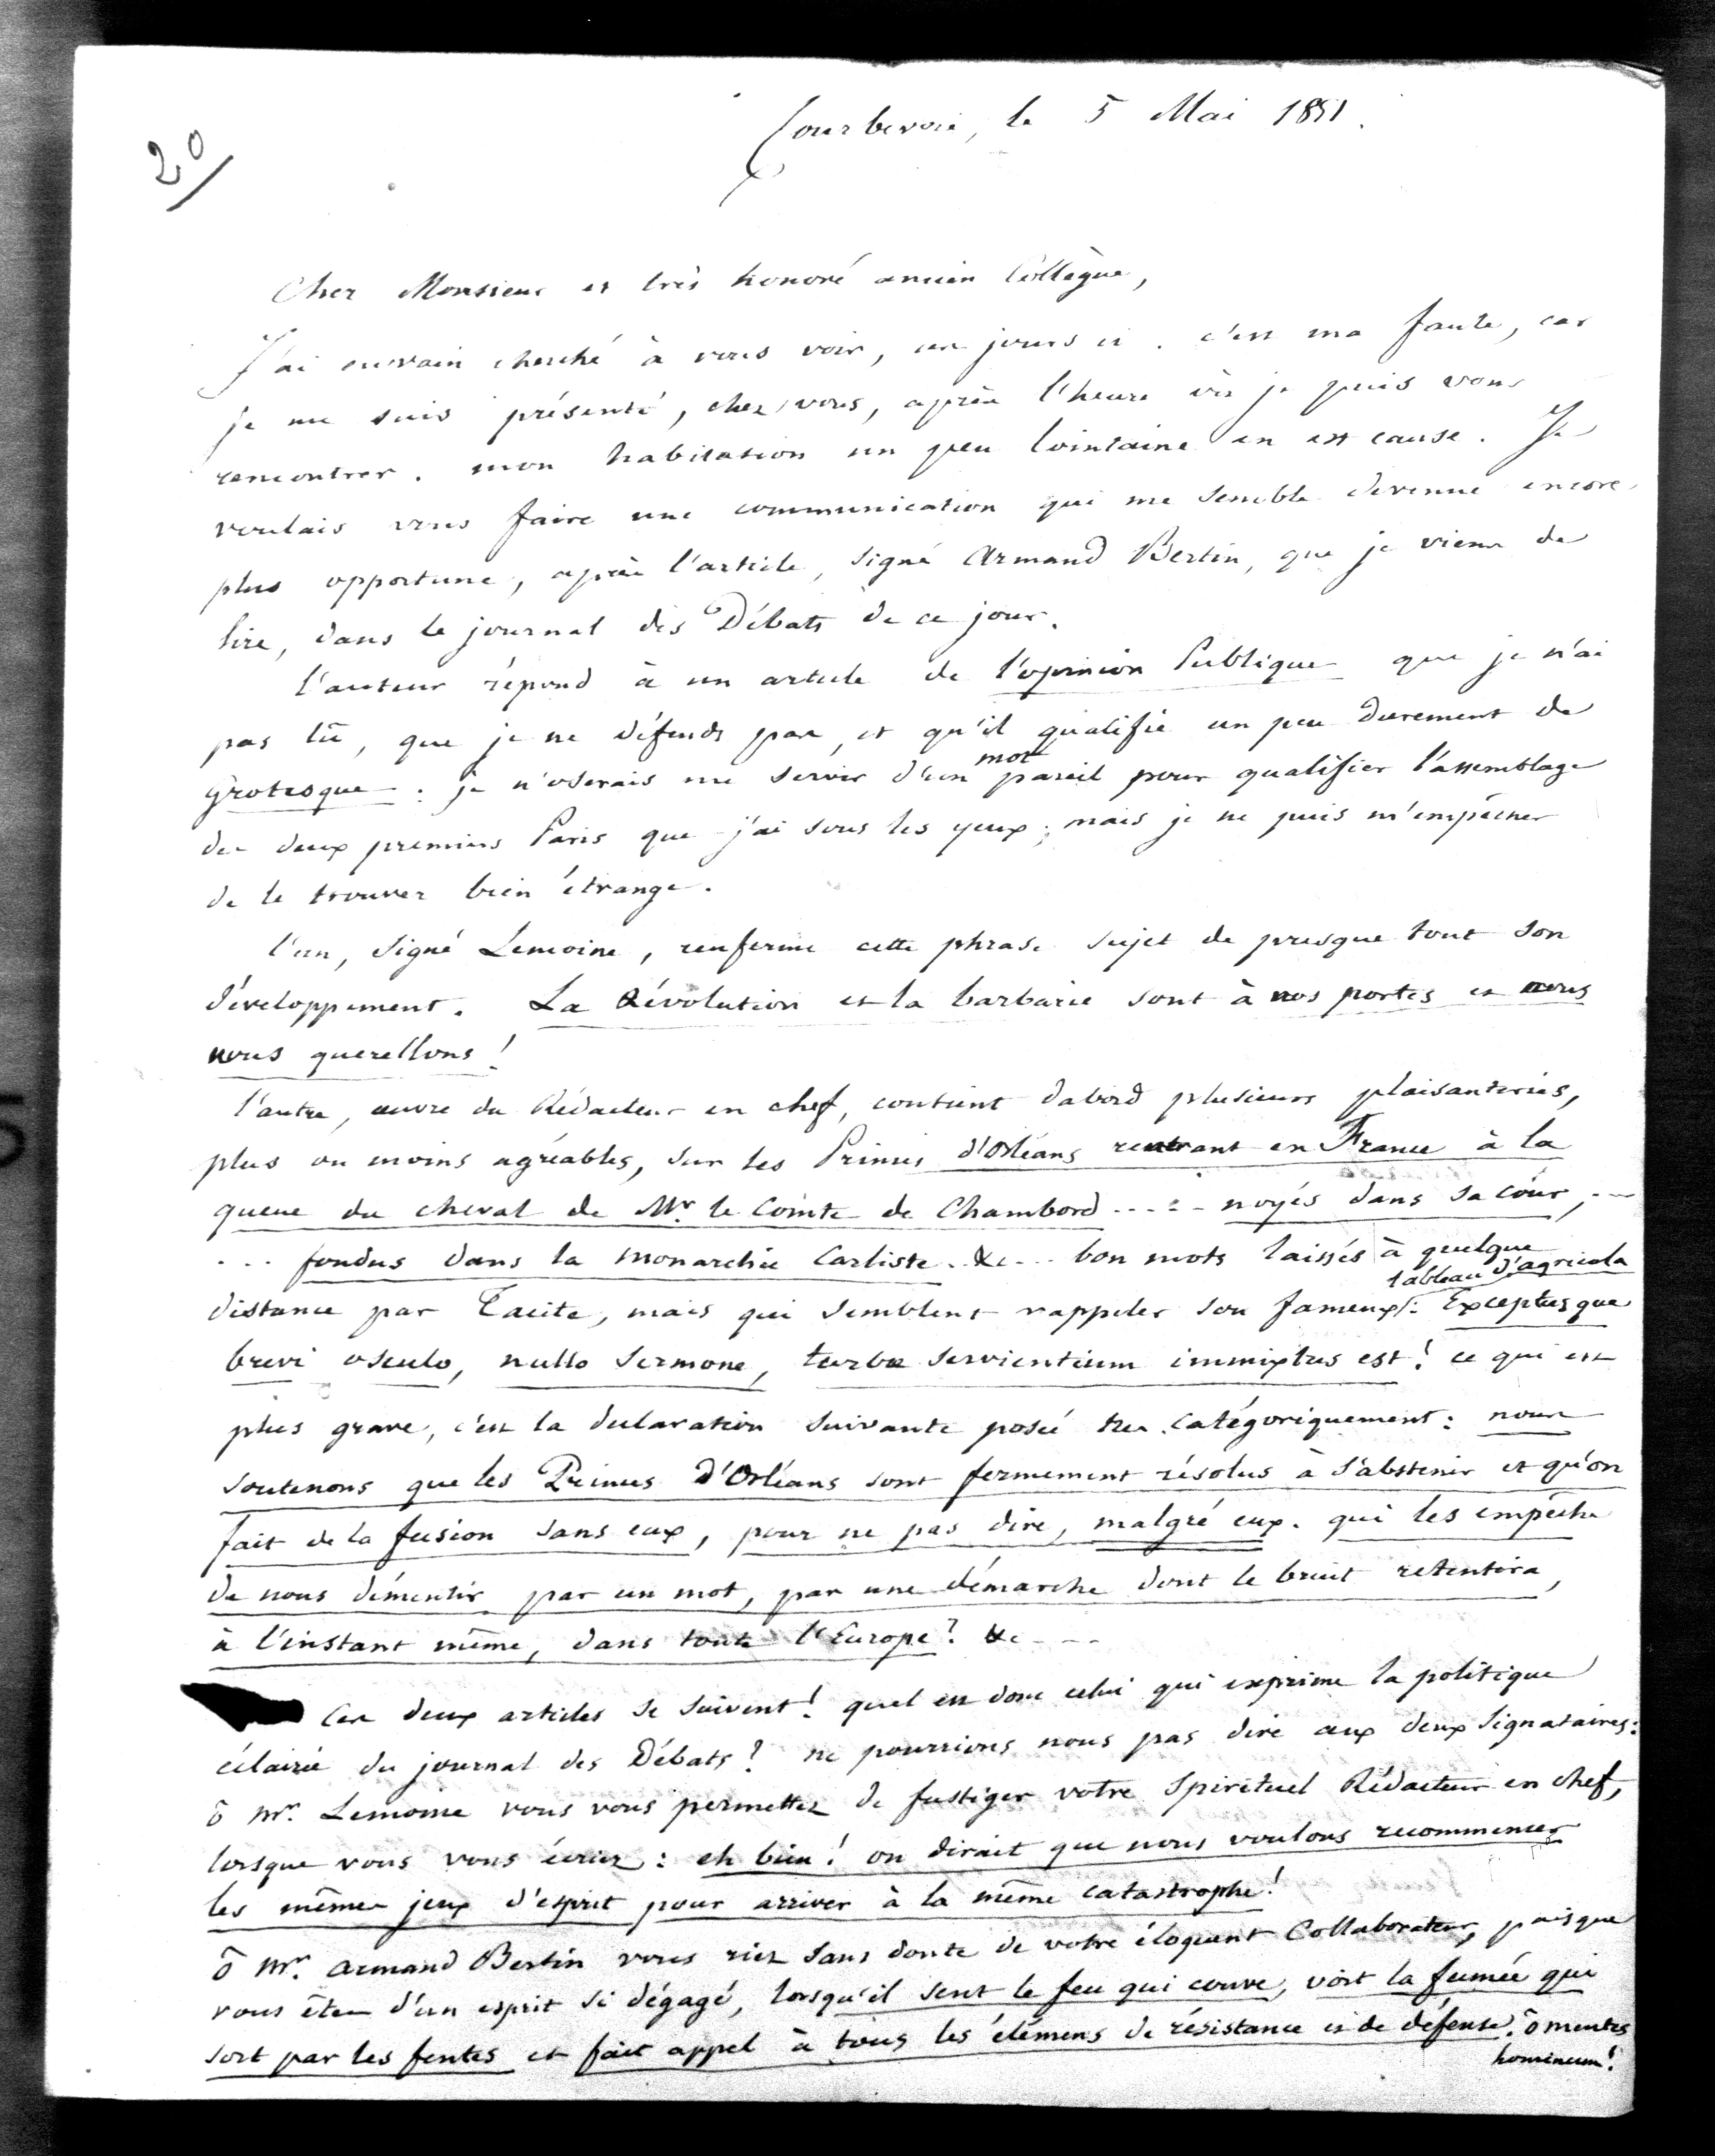 20
Courbevoie, le 5 Mai 1851.
Cher Monsieur et très honoré ancien Collègue,
J'ai envain cherché à vous voir, ces jours ci. c'est ma faute, car
je me suis présenté, chez vous, après l'heure où je puis vous
rencontrer. mon habitation un peu lointaine en est cause. Je
voulais vous faire une communication qui me semble devenue encore
plus opportune, après l'article, signé Armand Bertin, que je viens de
lire, dans le journal des Débats de ce jour.
l'auteur répond à un article de l'opinion Publique que je n'ai
pas lû, que je ne défends pas, et qu'il qualifie un peu durement de
grotesque : je n'oserais me servir d'un mot pareil pour qualifier l'assemblage
des deux premiers Paris que j'ai sous les yeux ; mais je ne puis m'empêcher
de le trouver bien étrange.
l'un, signé Lemoine, renferme cette phrase sujet de presque tout son
développement. La Révolution et la barbarie sont à nos portes et nous
nous querellons !
l'autre, œuvre du Rédacteur en chef, contient dabord plusieurs plaisanteries,
plus ou moins agréables, sur les Princes d'Orléans rentrant en France à la
queue du cheval de Mr. le Comte de Chambord ..... noyés dans sa cour, ..
... fondus dans la monarchie Carliste. &c... bon mots laissés à quelque
distance par Tacite, mais qui semblent rappeler son fameux tableau d'agricola : Exceptusque
brevi osculo, nullo sermone, turbæ servientium immixtus est ! ce qui est
plus grave, c'est la déclaration suivante posée très catégoriquement : nous
soutenons que les Princes D'Orléans sont fermement résolus à s'abstenir et qu'on
fait de la fusion sans eux, pour ne pas dire, malgré eux. qui les empêche
de nous démentir par un mot, par une démarche dont le bruit retentira,
à l'instant même, dans toute l'Europe ? &c ...
Ces deux articles se suivent ! quel est donc celui qui exprime la politique
éclairée du journal des Débats ? ne pourrions nous pas dire aux deux signataires :
ô Mr. Lemoine vous vous permettez de fustiger votre spirituel Rédacteur en chef,
lorsque vous vous écriez : eh bien ! on dirait que nous voulons recommencer
les mêmes jeux d'esprit pour arriver à la même catastrophe !
ô Mr. Armand Bertin vous riez sans doute de votre éloquent Collaborateur, puisque
vous êtes d'un esprit si dégagé, lorsqu'il sent le feu qui couve, voit la fumée qui
sort par les fentes et fait appel à tous les élémens de résistance et de défense. ô mentes
hominum !